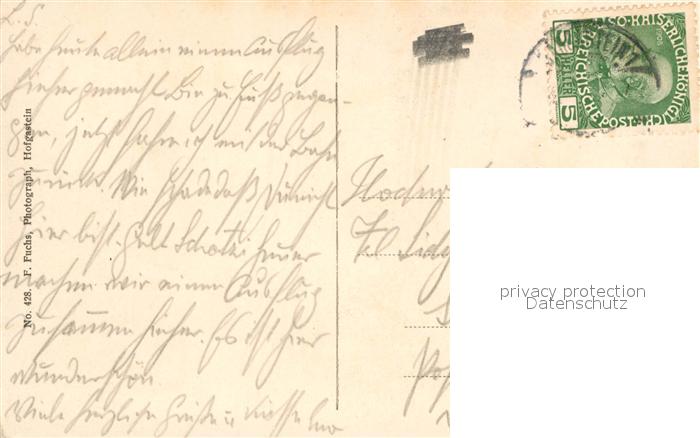 L. S.
Habe heute allein einen Ausflug
hieher gemacht. Bin zu Fuß gegan-
gen, jetzt fahre ich mit der Bahn
zurück. Wie schade daß Du nicht
hier bist. Gelt Schatzi heuer
machen wir einen Ausflug
zusammen hieher. Es ist hier
wunderschön
Viele herzliche Grüße u Küsse
No. 428. F. Fuchs, Photograph, Hofgastein
5 HELLER 5
KAISERLICHE KÖNIGL.
ÖSTERREICHISCHE POST
Hochw
Frl
privacy protection
Datenschutz